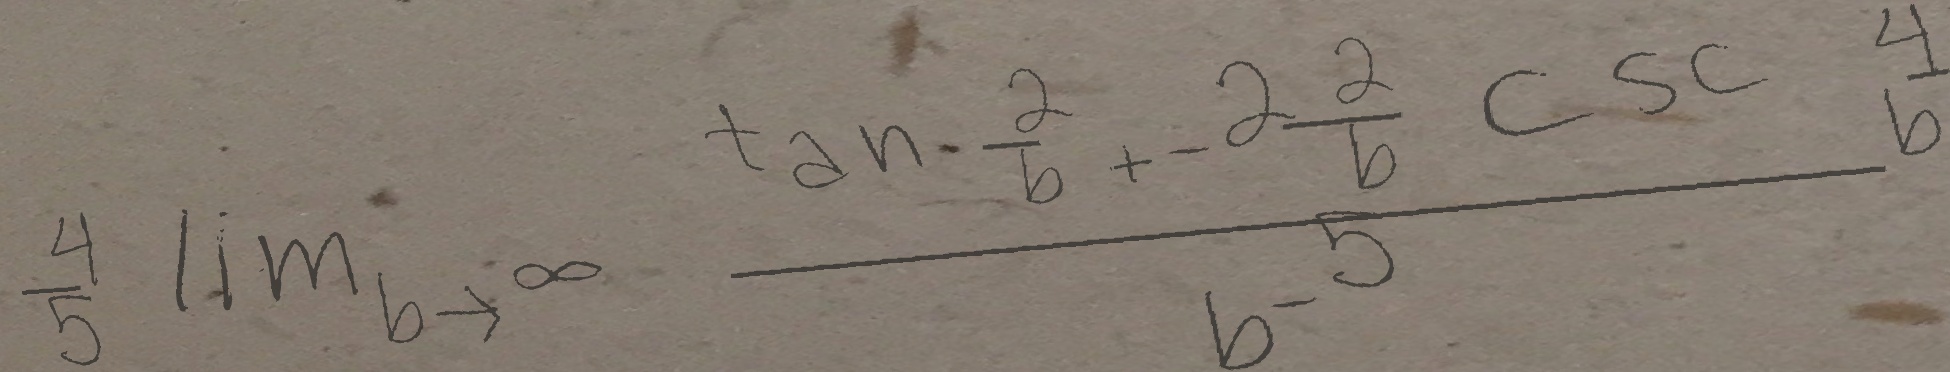 \frac{4}{5} \lim_{b \to \infty} \frac{\tan \frac{2}{b} + -2 \frac{2}{b} \csc \frac{4}{b}}{b^{-5}}